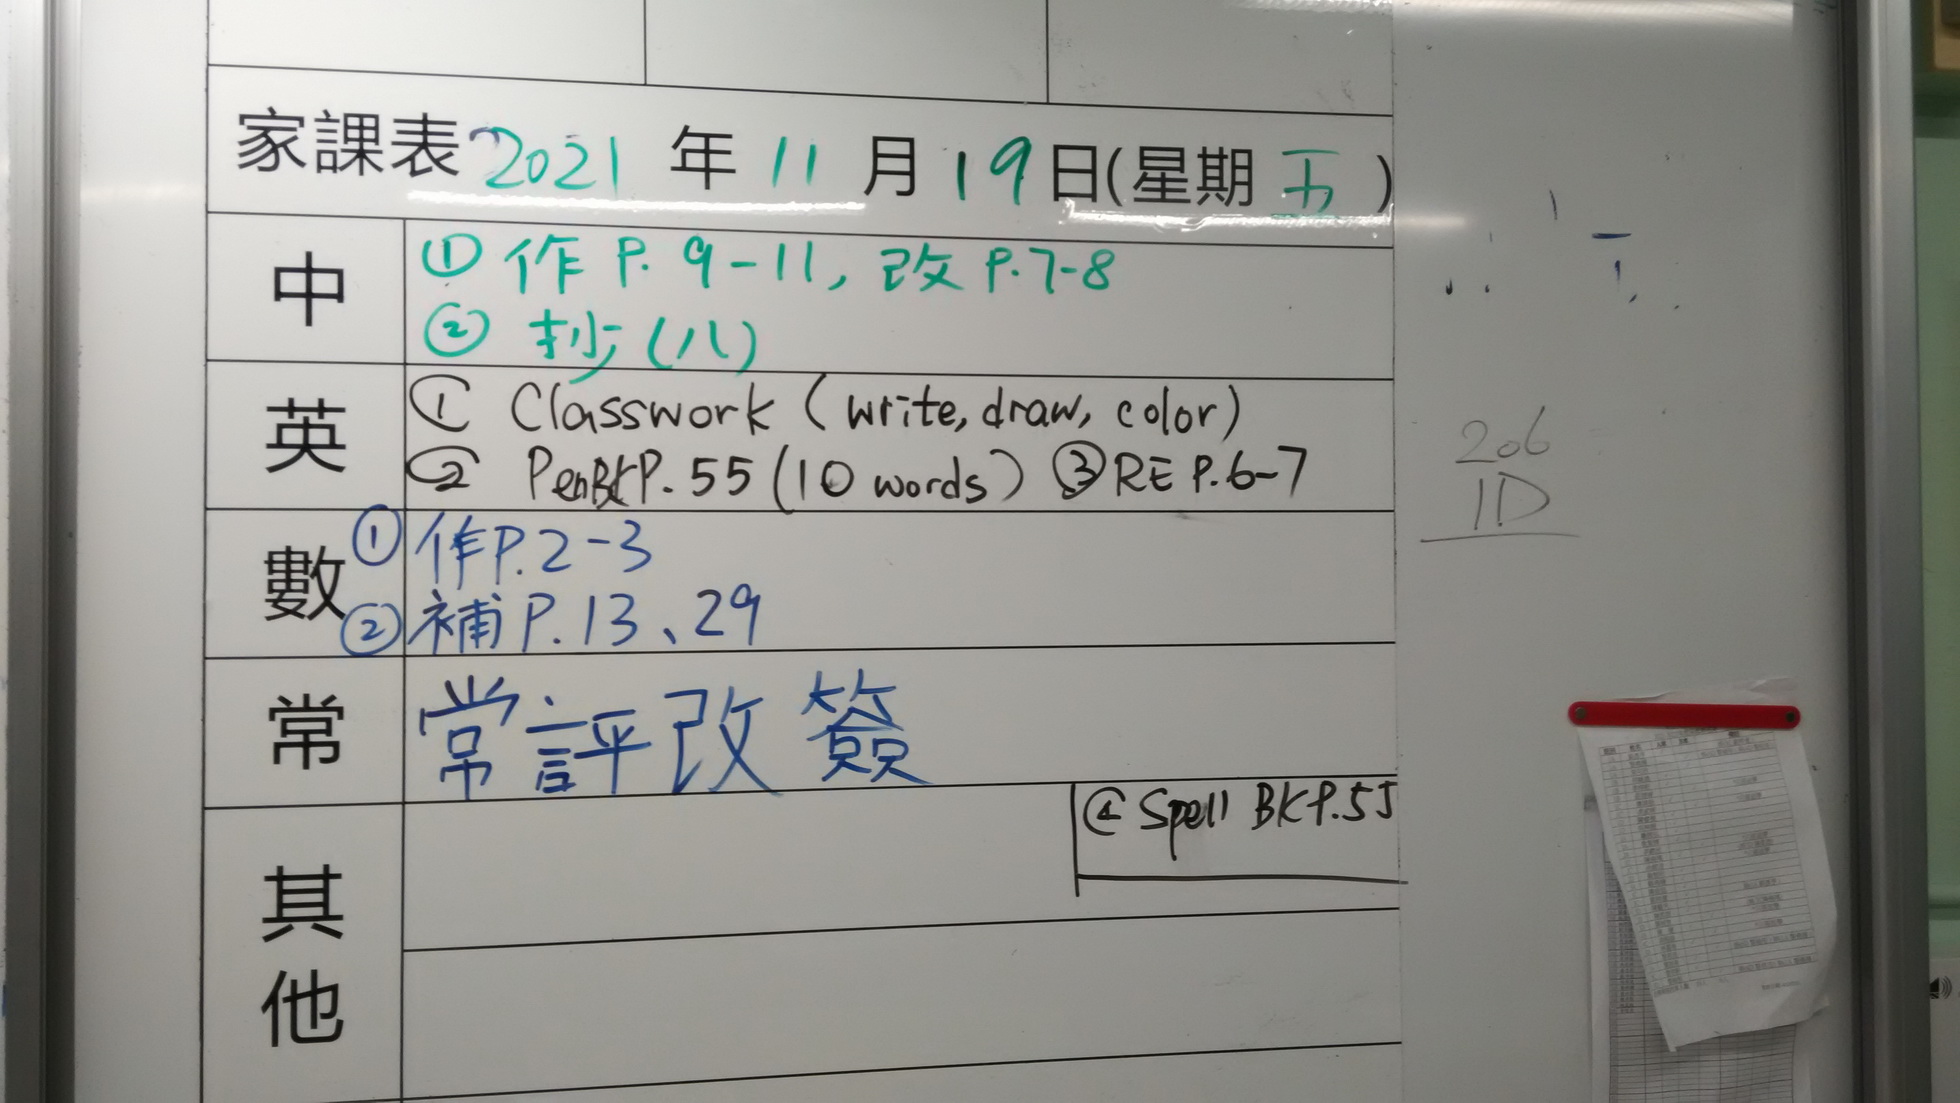 家課表 2021 年 11 月 19 日(星期 五 )
中
① 作 P. 9-11, 改 P.7-8
② 抄 (八)
英
① Classwork (write, draw, color)
② PenBK P. 55 (10 words) ③ RE P.6-7
數
① 作P.2-3
② 補 P.13、29
常
常評改簽
④ Spell BK P.55
其他
206
1D